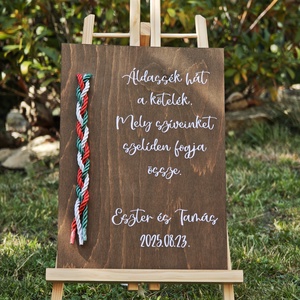 Áldassék hát
a kötelék,
Mely szíveinket
szelíden fogja
össze.
Eszter és Tamás
2025.08.23.